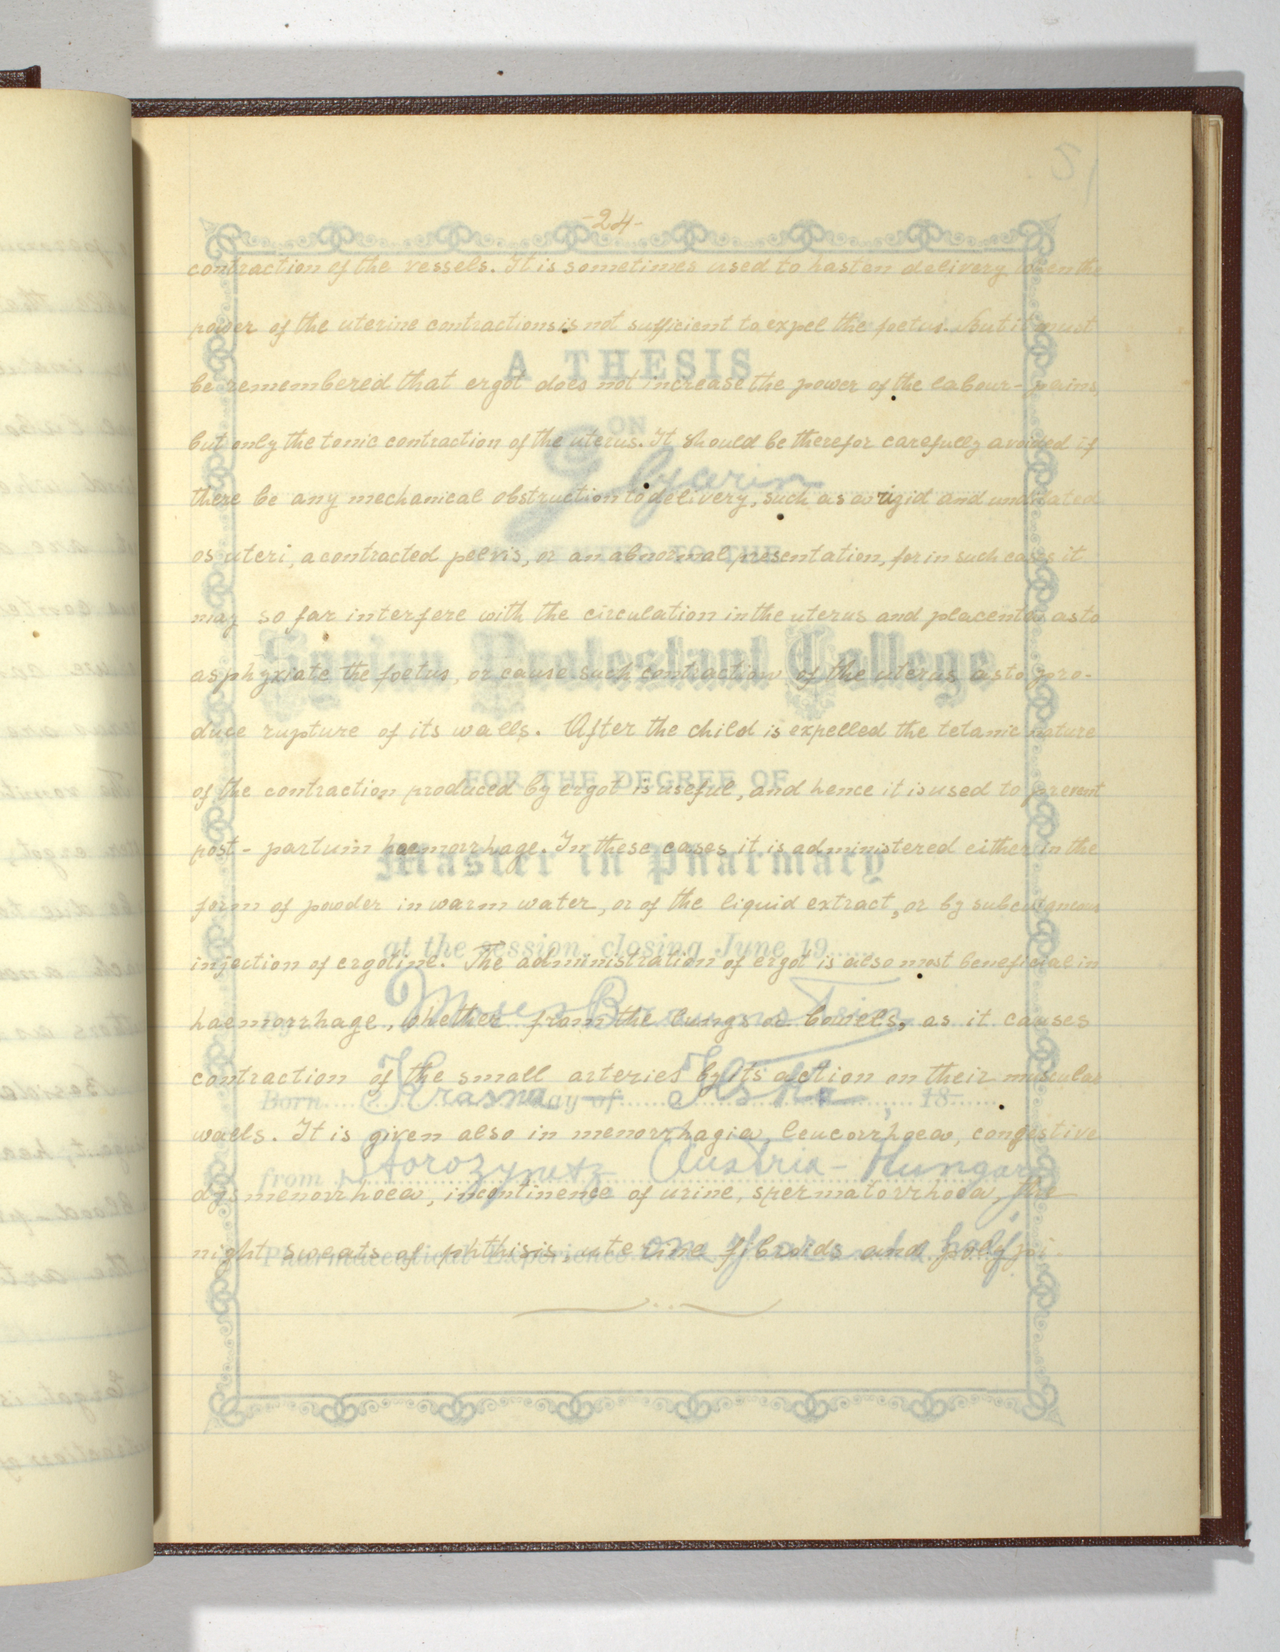 -24-
contraction of the vessels. It is sometimes used to hasten delivery when the
power of the uterine contractions is not sufficient to expel the foetus. but it must
be remembered that ergot does not increase the power of the labour-pains,
but only the tonic contraction of the uterus. It should be therefor carefully avoided if
there be any mechanical obstruction to delivery, such as a rigid and undilated
os uteri, a contracted pelvis, or an abnormal presentation, for in such cases it
may so far interfere with the circulation in the uterus and placenta as to
asphyxiate the foetus, or cause such contraction of the uterus as to pro-
duce rupture of its walls. After the child is expelled the tetanic nature
of the contraction produced by ergot is useful, and hence it is used to prevent
post-partum haemorrhage. In these cases it is administered either in the
form of powder in warm water, or of the liquid extract, or by subcutaneous
injection of ergotine. The administration of ergot is also most beneficial in
haemorrhage, whether from the lungs or bowels, as it causes
contraction of the small arteries by its action on their muscular
walls. It is given also in menorrhagia, leucorrhoea, congestive
dysmenorrhoea, incontinence of urine, spermatorrhoea, the
night sweats of phthisis, uterine fibroids and polypi.
A THESIS
ON
Glycerin
TO THE
Syrian Protestant College
FOR THE DEGREE OF
Master in Pharmacy
at the session, closing June 19
By
Born Krasna day of Ilski, 18
from Storozynetz Austria-Hungary
Pharmaceutical Experience one year and half